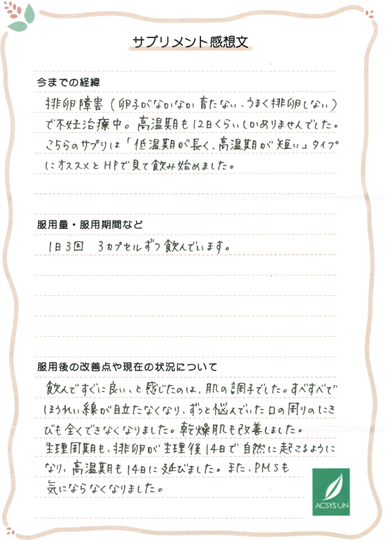 サプリメント感想文
今までの経緯
排卵障害(卵子がなかなか育たない、うまく排卵しない)
で不妊治療中。高温期も12日くらいしかありませんでした。
こちらのサプリは「低温期が長く、高温期が短い」タイプ
にオススメとHPで見て飲み始めました。
服用量・服用期間など
1日3回 3カプセルずつ飲んでいます。
服用後の改善点や現在の状況について
飲んですぐに良い、と感じたのは、肌の調子でした。すべすべで
ほうれい線が目立たなくなり、ずっと悩んでいた口の周りのにき
びも全くできなくなりました。乾燥肌も改善しました。
生理周期も、排卵が生理後14日で自然に起こるように
なり、高温期も14日に延びました。また、PMSも
気にならなくなりました。
ACSYSUN